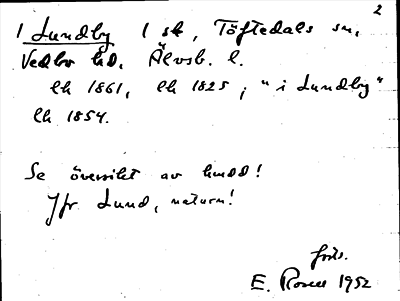 2
1 Lundby 1 sk, Töftedals sn,
Vedbo hd. Älvsb. l.
lh 1861, lh 1825; "i Lundby"
lh 1854.
Se översikt av hmdd!
Jfr Lund, naturn!
forts.
E. Rosell 1952